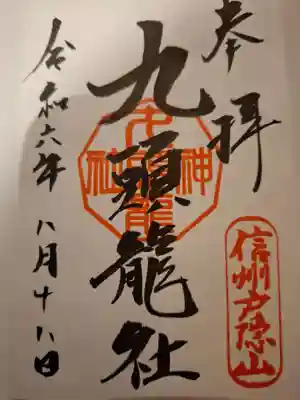 奉拝
信州戸隠山
九頭龍社
令和六年八月十八日